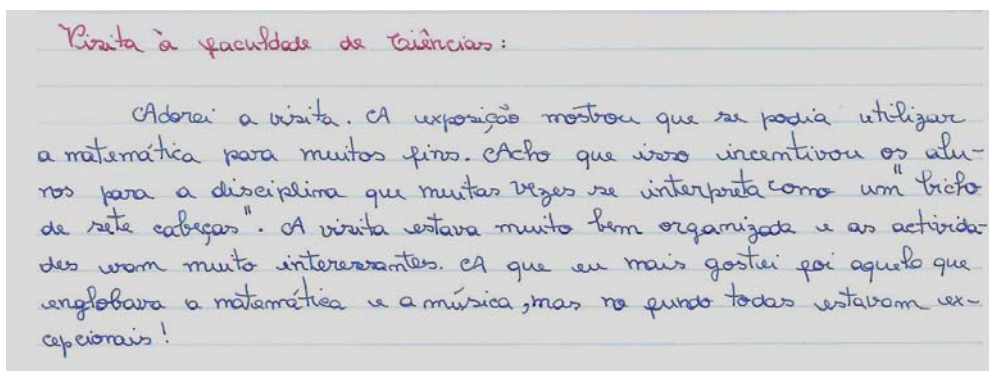 Visita à faculdade de Ciências:
Adorei a visita. A exposição mostrou que se podia utilizar
a matemática para muitos fins. Acho que isso incentivou os alu-
nos para a disciplina que muitas vezes se interpreta como um "bicho
de sete cabeças". A visita estava muito bem organizada e as activida-
des eram muito interessantes. A que eu mais gostei foi aquela que
englobava a matemática e a música, mas no fundo todas estavam ex-
cepcionais!